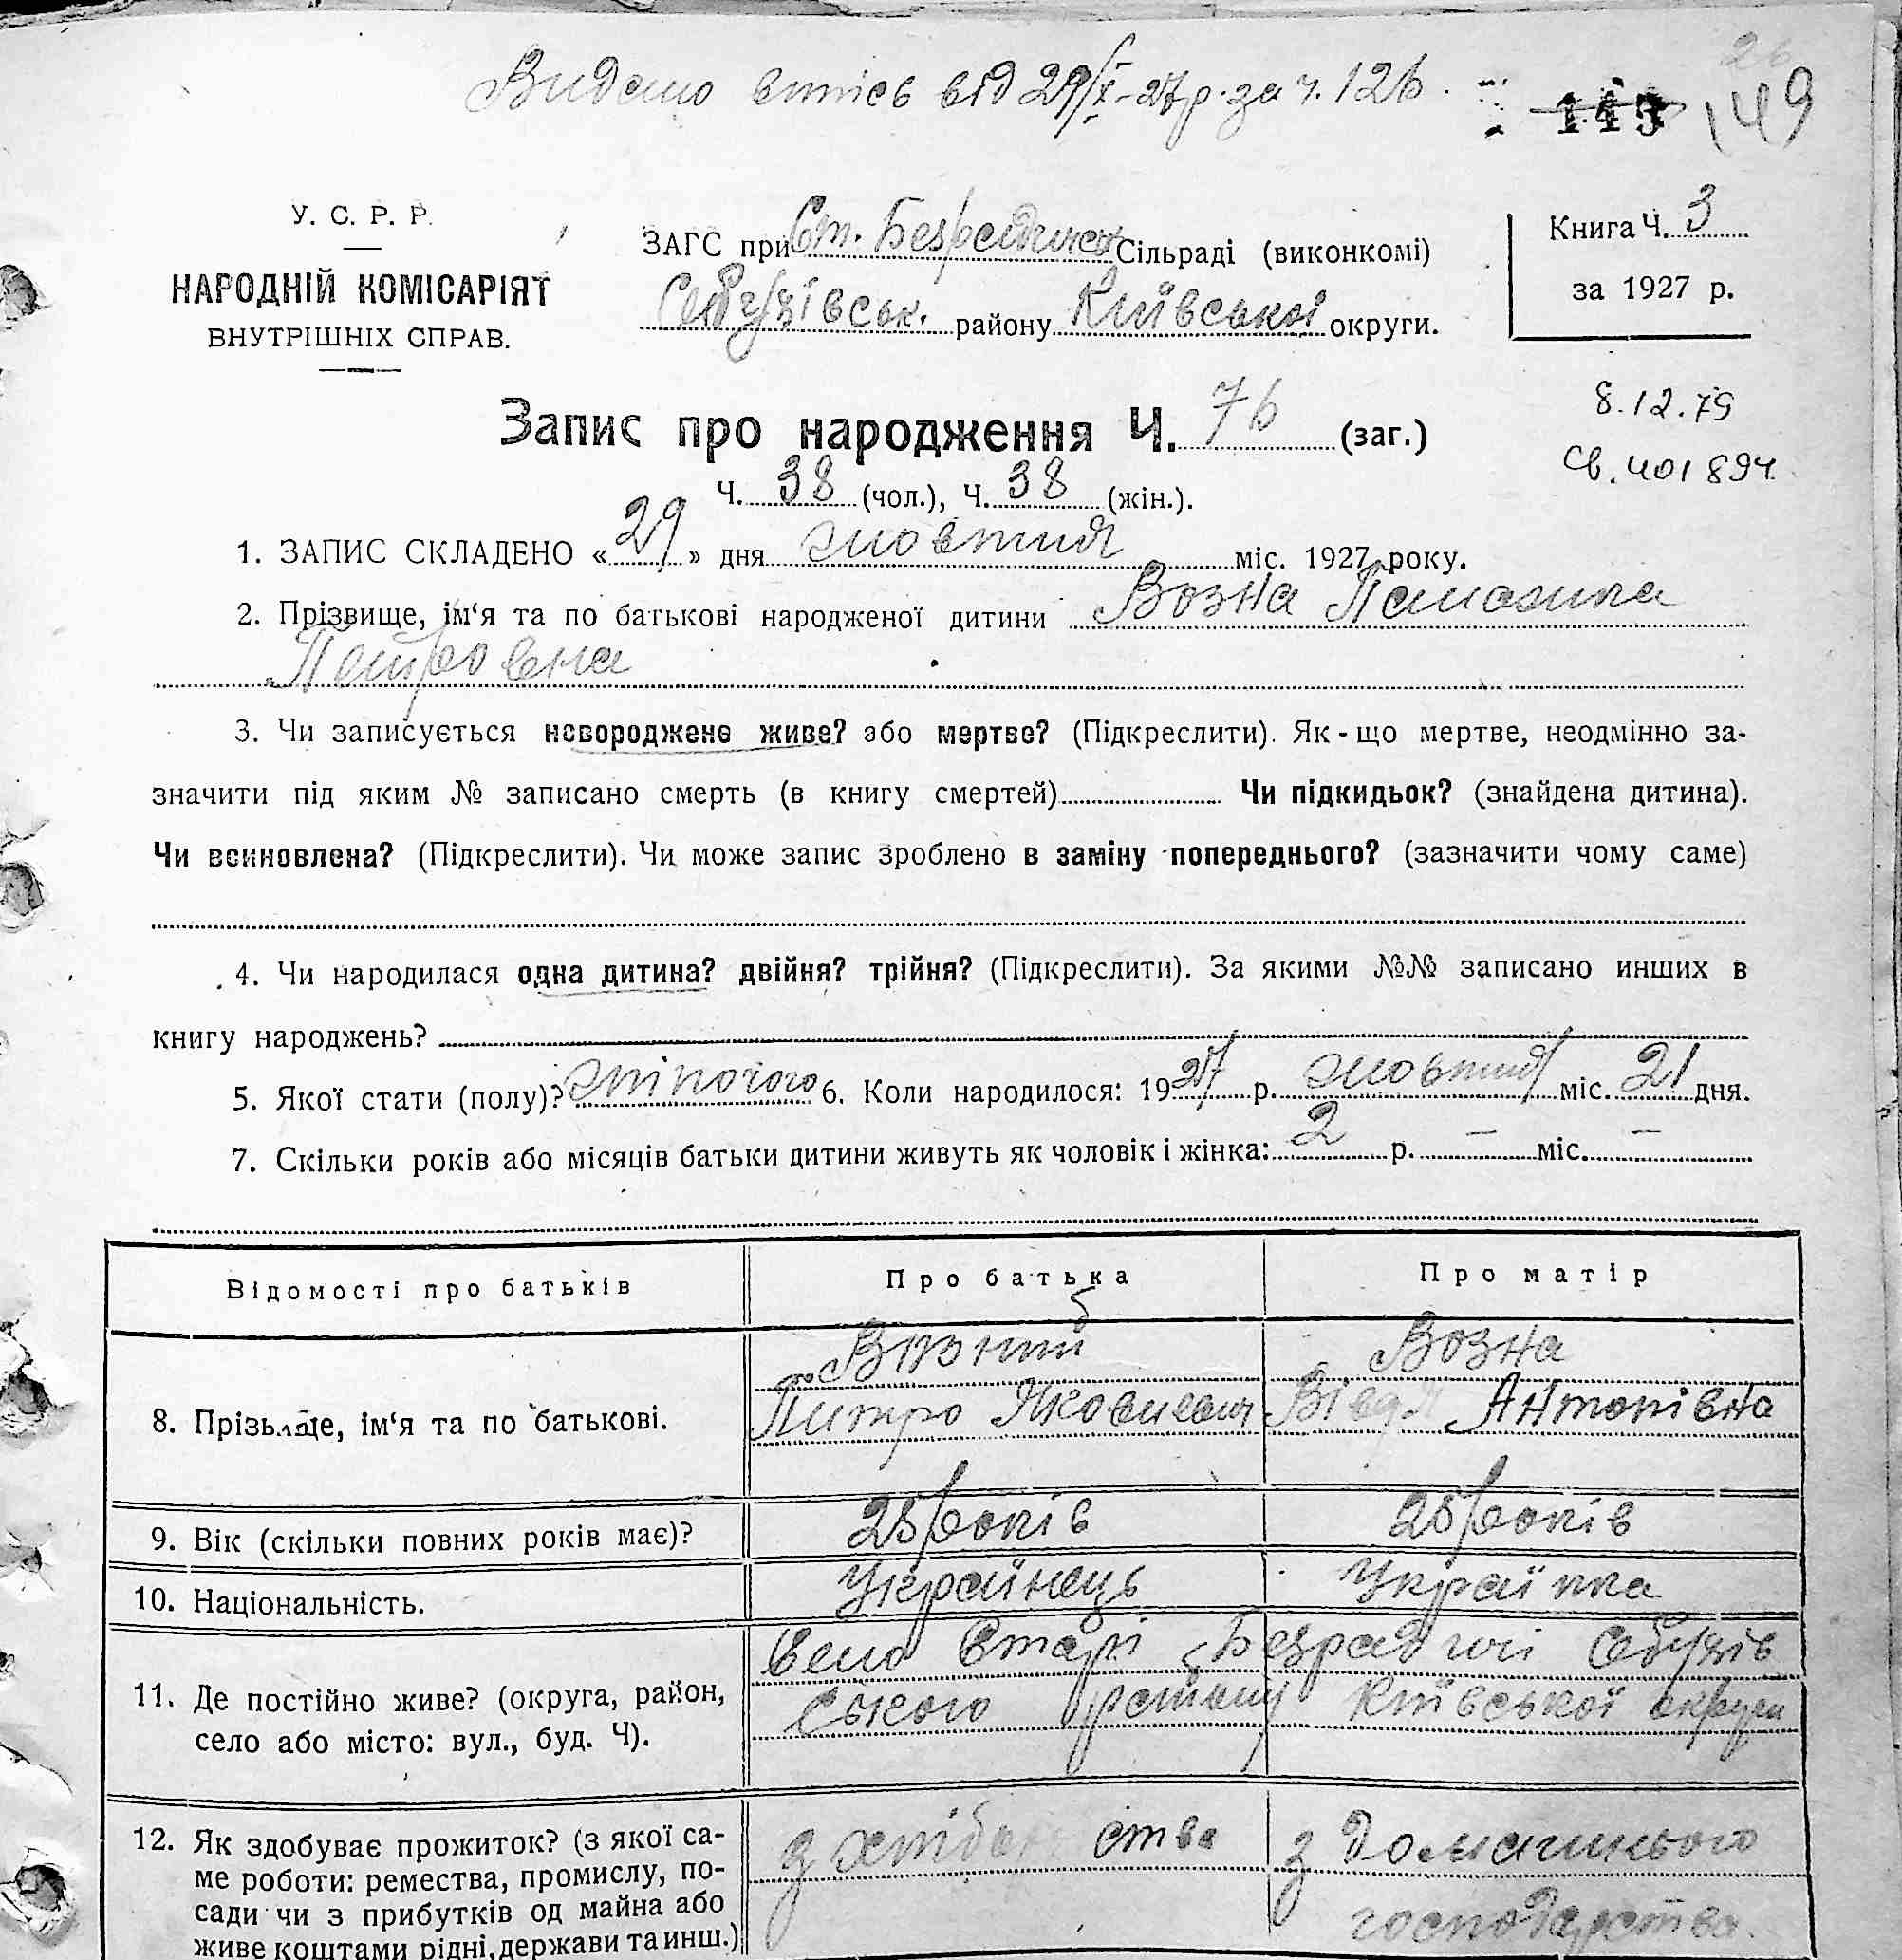 Видано витісь від 29/X-27р. за ч. 126.
26
143 149
У. С. Р. Р.
НАРОДНІЙ КОМІСАРІЯТ
ВНУТРІШНІХ СПРАВ.
ЗАГС при Ст. Безрадичск Сільраді (виконкомі)
Обухівськ. району Київської округи.
Книга Ч. 3
за 1927 р.
Запис про народження Ч. 76 (заг.)
Ч. 38 (чол.), Ч. 38 (жін.).
8.12.79
Св. 401894
1. ЗАПИС СКЛАДЕНО «29» дня жовтня міс. 1927 року.
2. Прізвище, ім‘я та по батькові народженої дитини Возна
Петровна
3. Чи записується новороджене живе? або мертве? (Підкреслити). Як-що мертве, неодмінно за-
значити під яким № записано смерть (в книгу смертей) Чи підкидьок? (знайдена дитина).
Чи всиновлена? (Підкреслити). Чи може запис зроблено в заміну попереднього? (зазначити чому саме)
4. Чи народилася одна дитина? двійня? трійня? (Підкреслити). За якими №№ записано инших в
книгу народжень?
5. Якої стати (полу)? жіночого 6. Коли народилося: 1927 р. жовтня міс. 21 дня.
7. Скільки років або місяців батьки дитини живуть як чоловік і жінка: 2 р. — міс. —
Відомості про батьків
Про батька
Про матір
8. Прізьвище, ім‘я та по батькові.
Візний
Питро Яковлевич
Возна
Антонівна
9. Вік (скільки повних років має)?
25 років
25 років
10. Національність.
Українець
Українка
11. Де постійно живе? (округа, район,
село або місто: вул., буд. Ч).
село Старі Безрадичі Обухів
ського району Київської округи
12. Як здобуває прожиток? (з якої са-
ме роботи: ремества, промислу, по-
сади чи з прибутків од майна або
живе коштами рідні, держави та инш.)
з хліборобства
з домашнього
господарства.